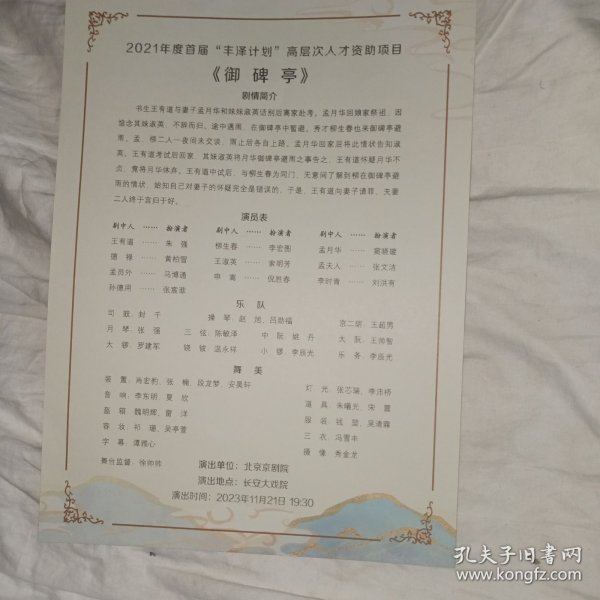 2021年度首届“丰泽计划”高层次人才资助项目
《御碑亭》
剧情简介
书生王有道与妻子孟月华和妹妹淑英话别后离家赴考。孟月华回娘家祭祖,因
惦念其妹淑英,不辞而归。途中遇雨,在御碑亭中暂避。秀才柳生春也来御碑亭避
雨。孟、柳二人一夜间未交谈,雨止后各自上路。孟月华回家后将此情状告知淑
英。王有道考试后回家,其妹淑英将月华御碑亭避雨之事告之,王有道怀疑月华不
贞,竟将月华休弃。王有道中试后,与柳生春为同门,无意间了解到柳在御碑亭避
雨的情状,始知自己对妻子的怀疑完全是错误的,于是,王有道向妻子请罪,夫妻
二人终于言归于好。
演员表
剧中人 …… 扮演者 剧中人 …… 扮演者 剧中人 …… 扮演者
王有道 …… 朱强 柳生春 …… 李宏图 孟月华 …… 窦晓璇
德禄 …… 黄柏雪 王淑英 …… 索明芳 孟夫人 …… 张文洁
孟员外 …… 马博通 申嵩 …… 倪胜春 李时青 …… 刘洪有
孙德用 …… 张宸菲
乐队
司鼓:封千 操琴:赵旭、吕勋福 京二胡:王超男
月琴:张强 三弦:陈敏泽 中阮:姚丹 大阮:王帅智
大锣:罗建军 铙钹:温永祥 小锣:李辰光 乐务:李辰光
舞美
装置:肖宏豹、张楠、段龙梦、安昊轩 灯光:张芯瑞、李沛桥
音响:李东明、夏欣 道具:朱曦光、宋
盔箱:魏明辉、雷洋 服装:钱塑、吴清霖
容妆:祁珊、吴亭萱 三衣:冯雪丰
字幕:谭雅心 摄像:秀金龙
舞台监督:徐帅帅 演出单位:北京京剧院
演出地点:长安大戏院
演出时间:2023年11月21日 19:30
孔夫子旧书网
www.kongfz.com